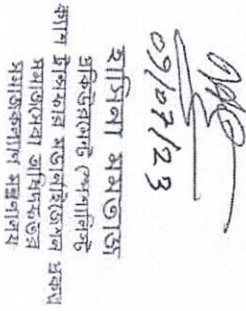 09/07/23
হাসিনা মমতাজ
প্রকিউরমেন্ট স্পেশালিস্ট
ক্যাশ ট্রান্সফার মডার্নাইজেশন প্রকল্প
সমাজসেবা অধিদফতর
সমাজকল্যাণ মন্ত্রণালয়